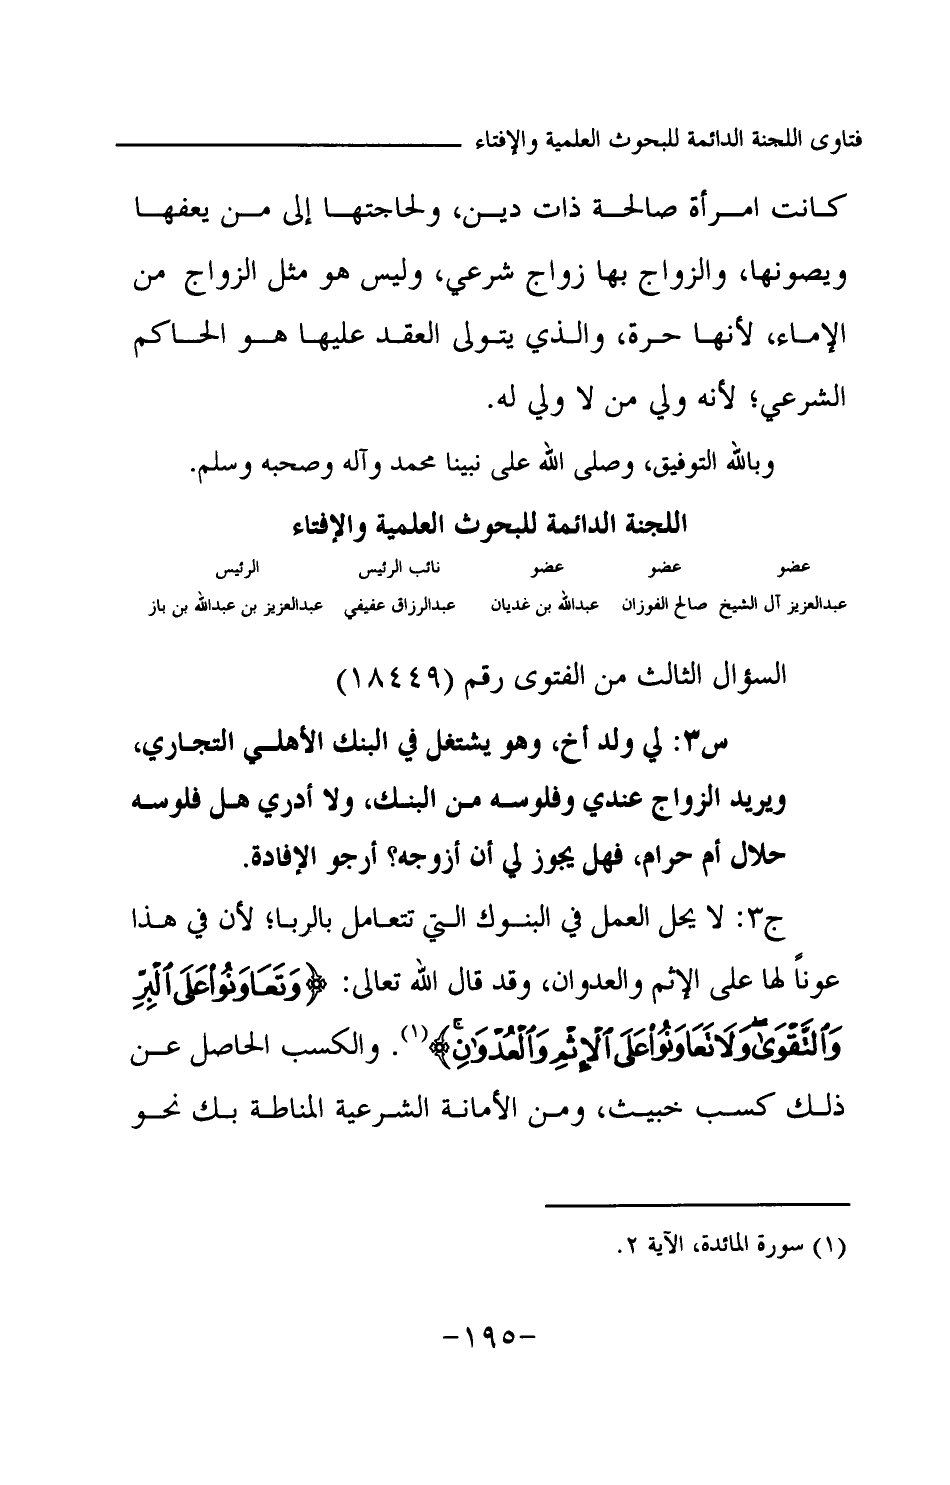 فتاوى اللجنة الدائمة للبحوث العلمية والإفتاء
كانت امرأة صالحة ذات دين، ولحاجتها إلى من يعفها
ويصونها، والزواج بها زواج شرعي، وليس هو مثل الزواج من
الإماء، لأنها حرة، والذي يتولى العقد عليها هو الحاكم
الشرعي؛ لأنه ولي من لا ولي له.
وبالله التوفيق، وصلى الله على نبينا محمد وآله وصحبه وسلم.
اللجنة الدائمة للبحوث العلمية والإفتاء
عضو عضو عضو نائب الرئيس الرئيس
عبدالعزيز آل الشيخ صالح الفوزان عبدالله بن غديان عبدالرزاق عفيفي عبدالعزيز بن عبدالله بن باز
السؤال الثالث من الفتوى رقم (١٨٤٤٩)
س٣: لي ولد أخ، وهو يشتغل في البنك الأهلي التجاري،
ويريد الزواج عندي وفلوسه من البنك، ولا أدري هل فلوسه
حلال أم حرام، فهل يجوز لي أن أزوجه؟ أرجو الإفادة.
ج٣: لا يحل العمل في البنوك التي تتعامل بالربا؛ لأن في هذا
عوناً لها على الإثم والعدوان، وقد قال الله تعالى: ﴿وَتَعَاوَنُوا۟ عَلَى ٱلْبِرِّ
وَٱلتَّقْوَىٰ ۖ وَلَا تَعَاوَنُوا۟ عَلَى ٱلْإِثْمِ وَٱلْعُدْوَٰنِ ۚ﴾(١). والكسب الحاصل عن
ذلك كسب خبيث، ومن الأمانة الشرعية المناطة بك نحو
(١) سورة المائدة، الآية ٢.
-١٩٥-